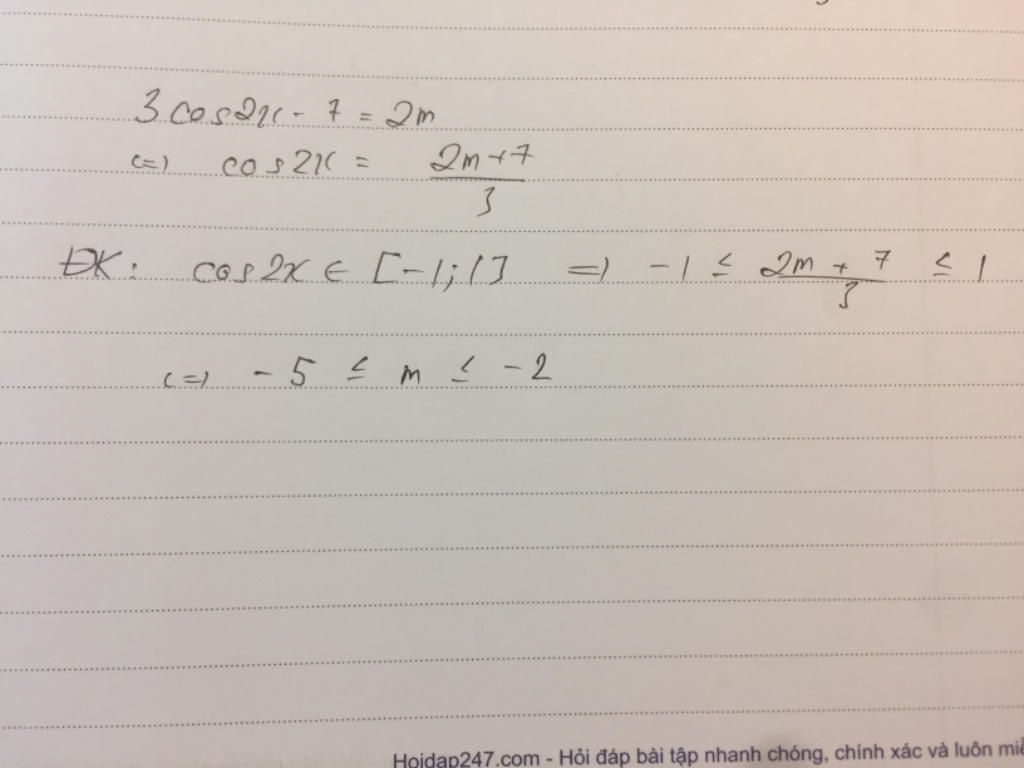 3 cos2x - 7 = 2m
<=> cos2x = (2m+7)/3
ĐK: cos2x ∈ [-1;1] => -1 ≤ (2m + 7)/3 ≤ 1
<=> -5 ≤ m ≤ -2
Hoidap247.com - Hỏi đáp bài tập nhanh chóng, chính xác và luôn